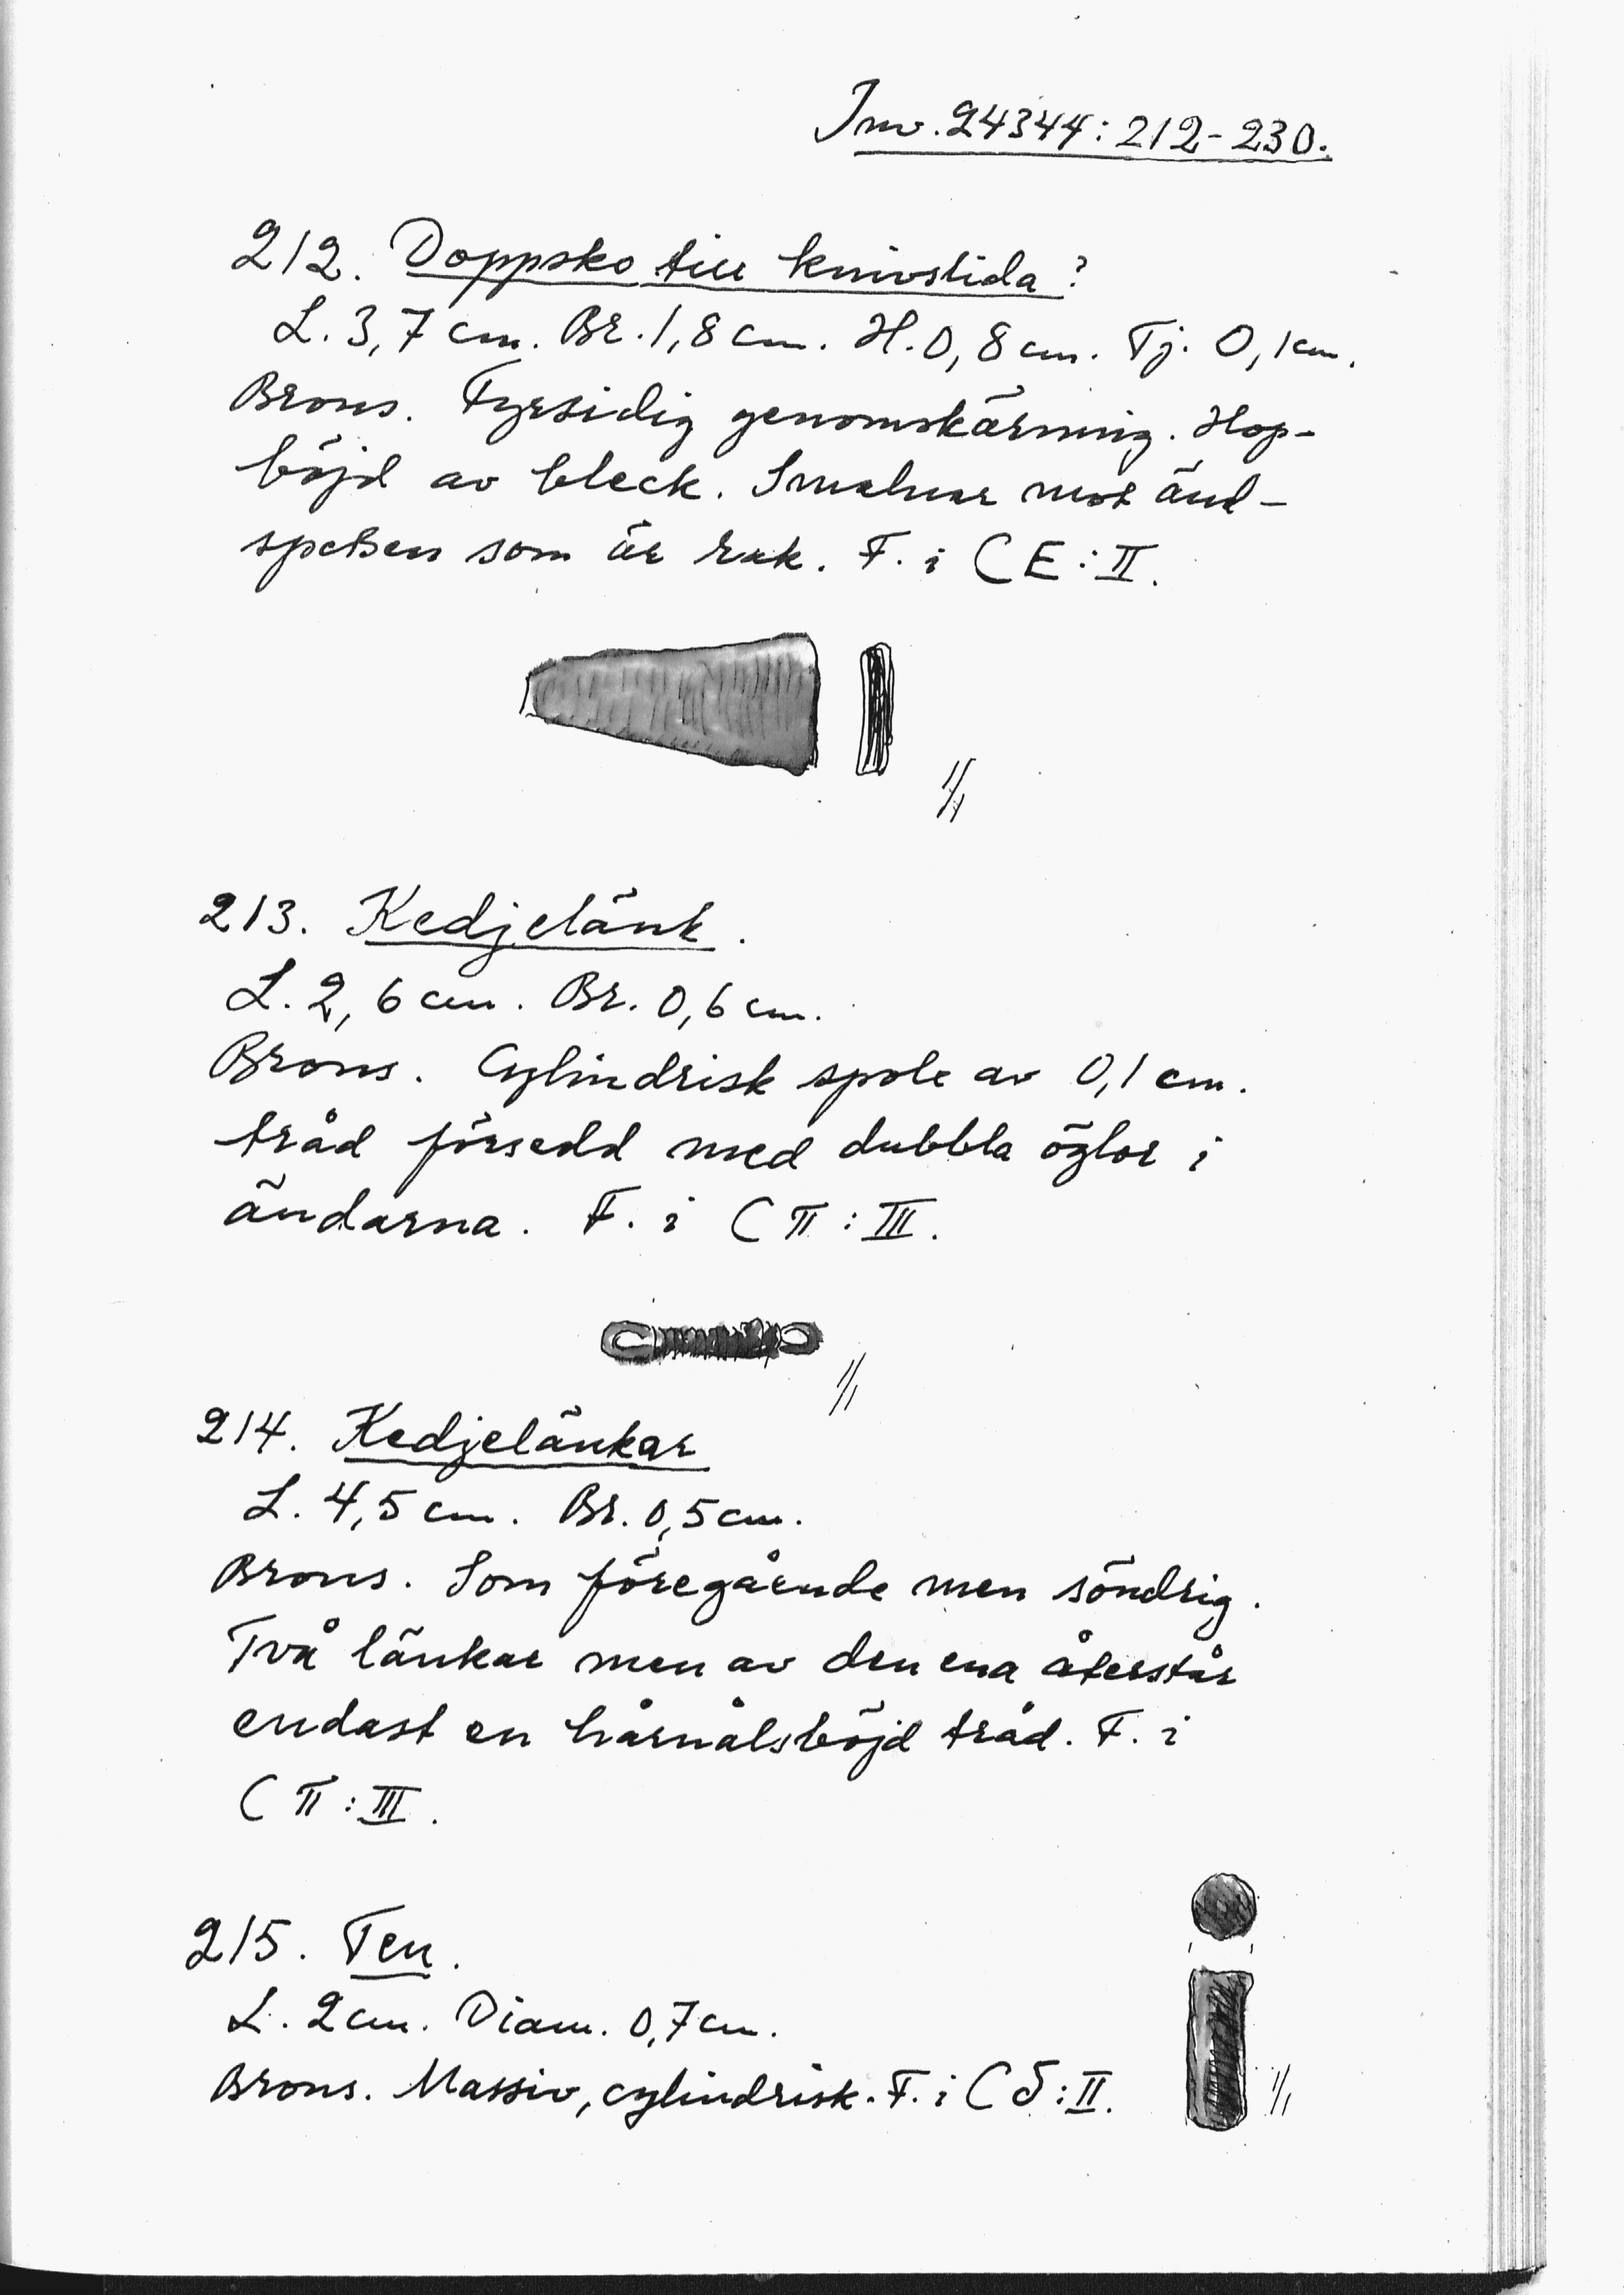 Inv. 24344:212-230.
212. Doppsko till knivslida?
L. 3,7 cm. Br. 1,8 cm. H. 0,8 cm. Tj. 0,1 cm.
Brons. Fyrsidig genomskärning. Hop-
böjd av bleck. Smalnar mot änd-
spetsen som är rak. F. i CE:II.
1/1
213. Kedjelänk.
L. 2,6 cm. Br. 0,6 cm.
Brons. Cylindrisk spole av 0,1 cm.
tråd försedd med dubbla öglor i
ändarna. F. i Cπ:III.
1/1
214. Kedjelänkar
L. 4,5 cm. Br. 0,5 cm.
Brons. Som föregående men söndrig.
Två länkar men av den ena återstår
endast en hårnålsböjd tråd. F. i
Cπ:III.
215. Ten.
L. 2 cm. Diam. 0,7 cm.
Brons. Massiv, cylindrisk. F. i Cδ:II.
1/1